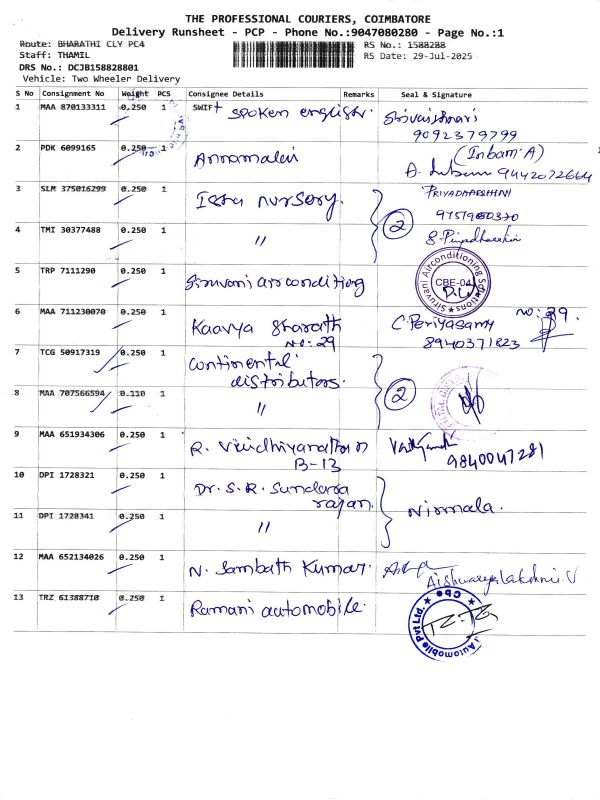 THE PROFESSIONAL COURIERS, COIMBATORE
Delivery Runsheet - PCP - Phone No.:9047080280 - Page No.:1
Route: BHARATHI CLY PC4
RS No.: 1588288
Staff: THAMIL
RS Date: 29-Jul-2025
DRS No.: DCJB158828801
Vehicle: Two Wheeler Delivery
S No Consignment No Weight PCS Consignee Details Remarks Seal & Signature
1 MAA 870133311 0.250 1 SWIFT Spoken english.
9092379799
2 PDK 6099165 0.250 1 Annamalai
(Inbam.A)
9442072664
3 SLM 375016299 0.250 1 Isha nursery.
PRIYADHARSHINI
2
4 TMI 30377488 0.250 1 "
5 TRP 7111290 0.250 1 Siruvani airconditing
Siruvani Airconditioning Solutions
CBE-04
6 MAA 711230070 0.250 1 Kaavya Bharath
No: 29
C. Periyasamy
no: 29.
8940371823
7 TCG 50917319 0.250 1 Continental
distributors.
2
8 MAA 707566594 0.110 1 "
9 MAA 651934306 0.250 1 R. Vaidhiyanathan
B-13
9840047281
10 DPI 1728321 0.250 1 Dr. S. R. Sundara
rajan.
Nirmala.
11 DPI 1728341 0.250 1 "
12 MAA 652134026 0.250 1 N. Sambath Kumar.
Aishwaryalakshmi.V
13 TRZ 61388710 0.250 1 Ramani automobile.
Automobile Pvt Ltd.
CBE